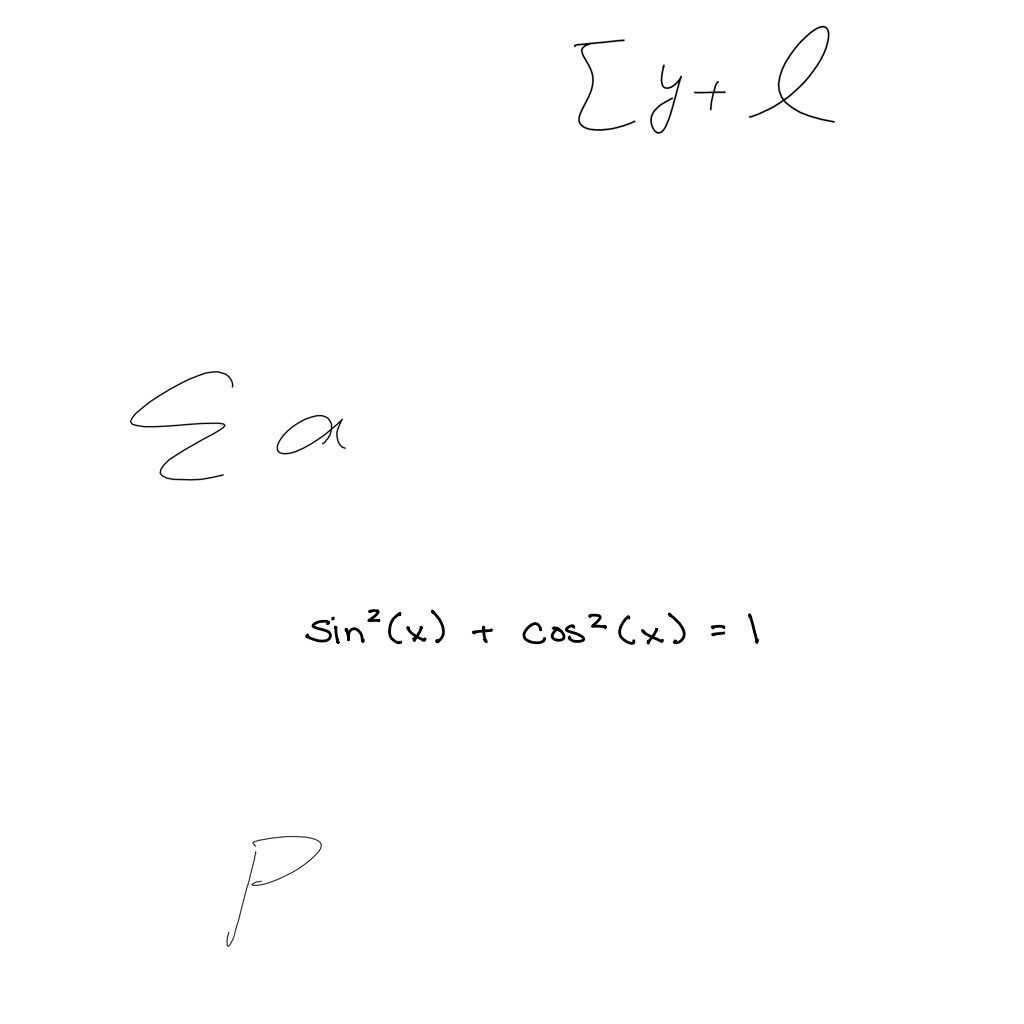 Σy+ l
Σ a
sin²(x) + cos²(x) = 1
P